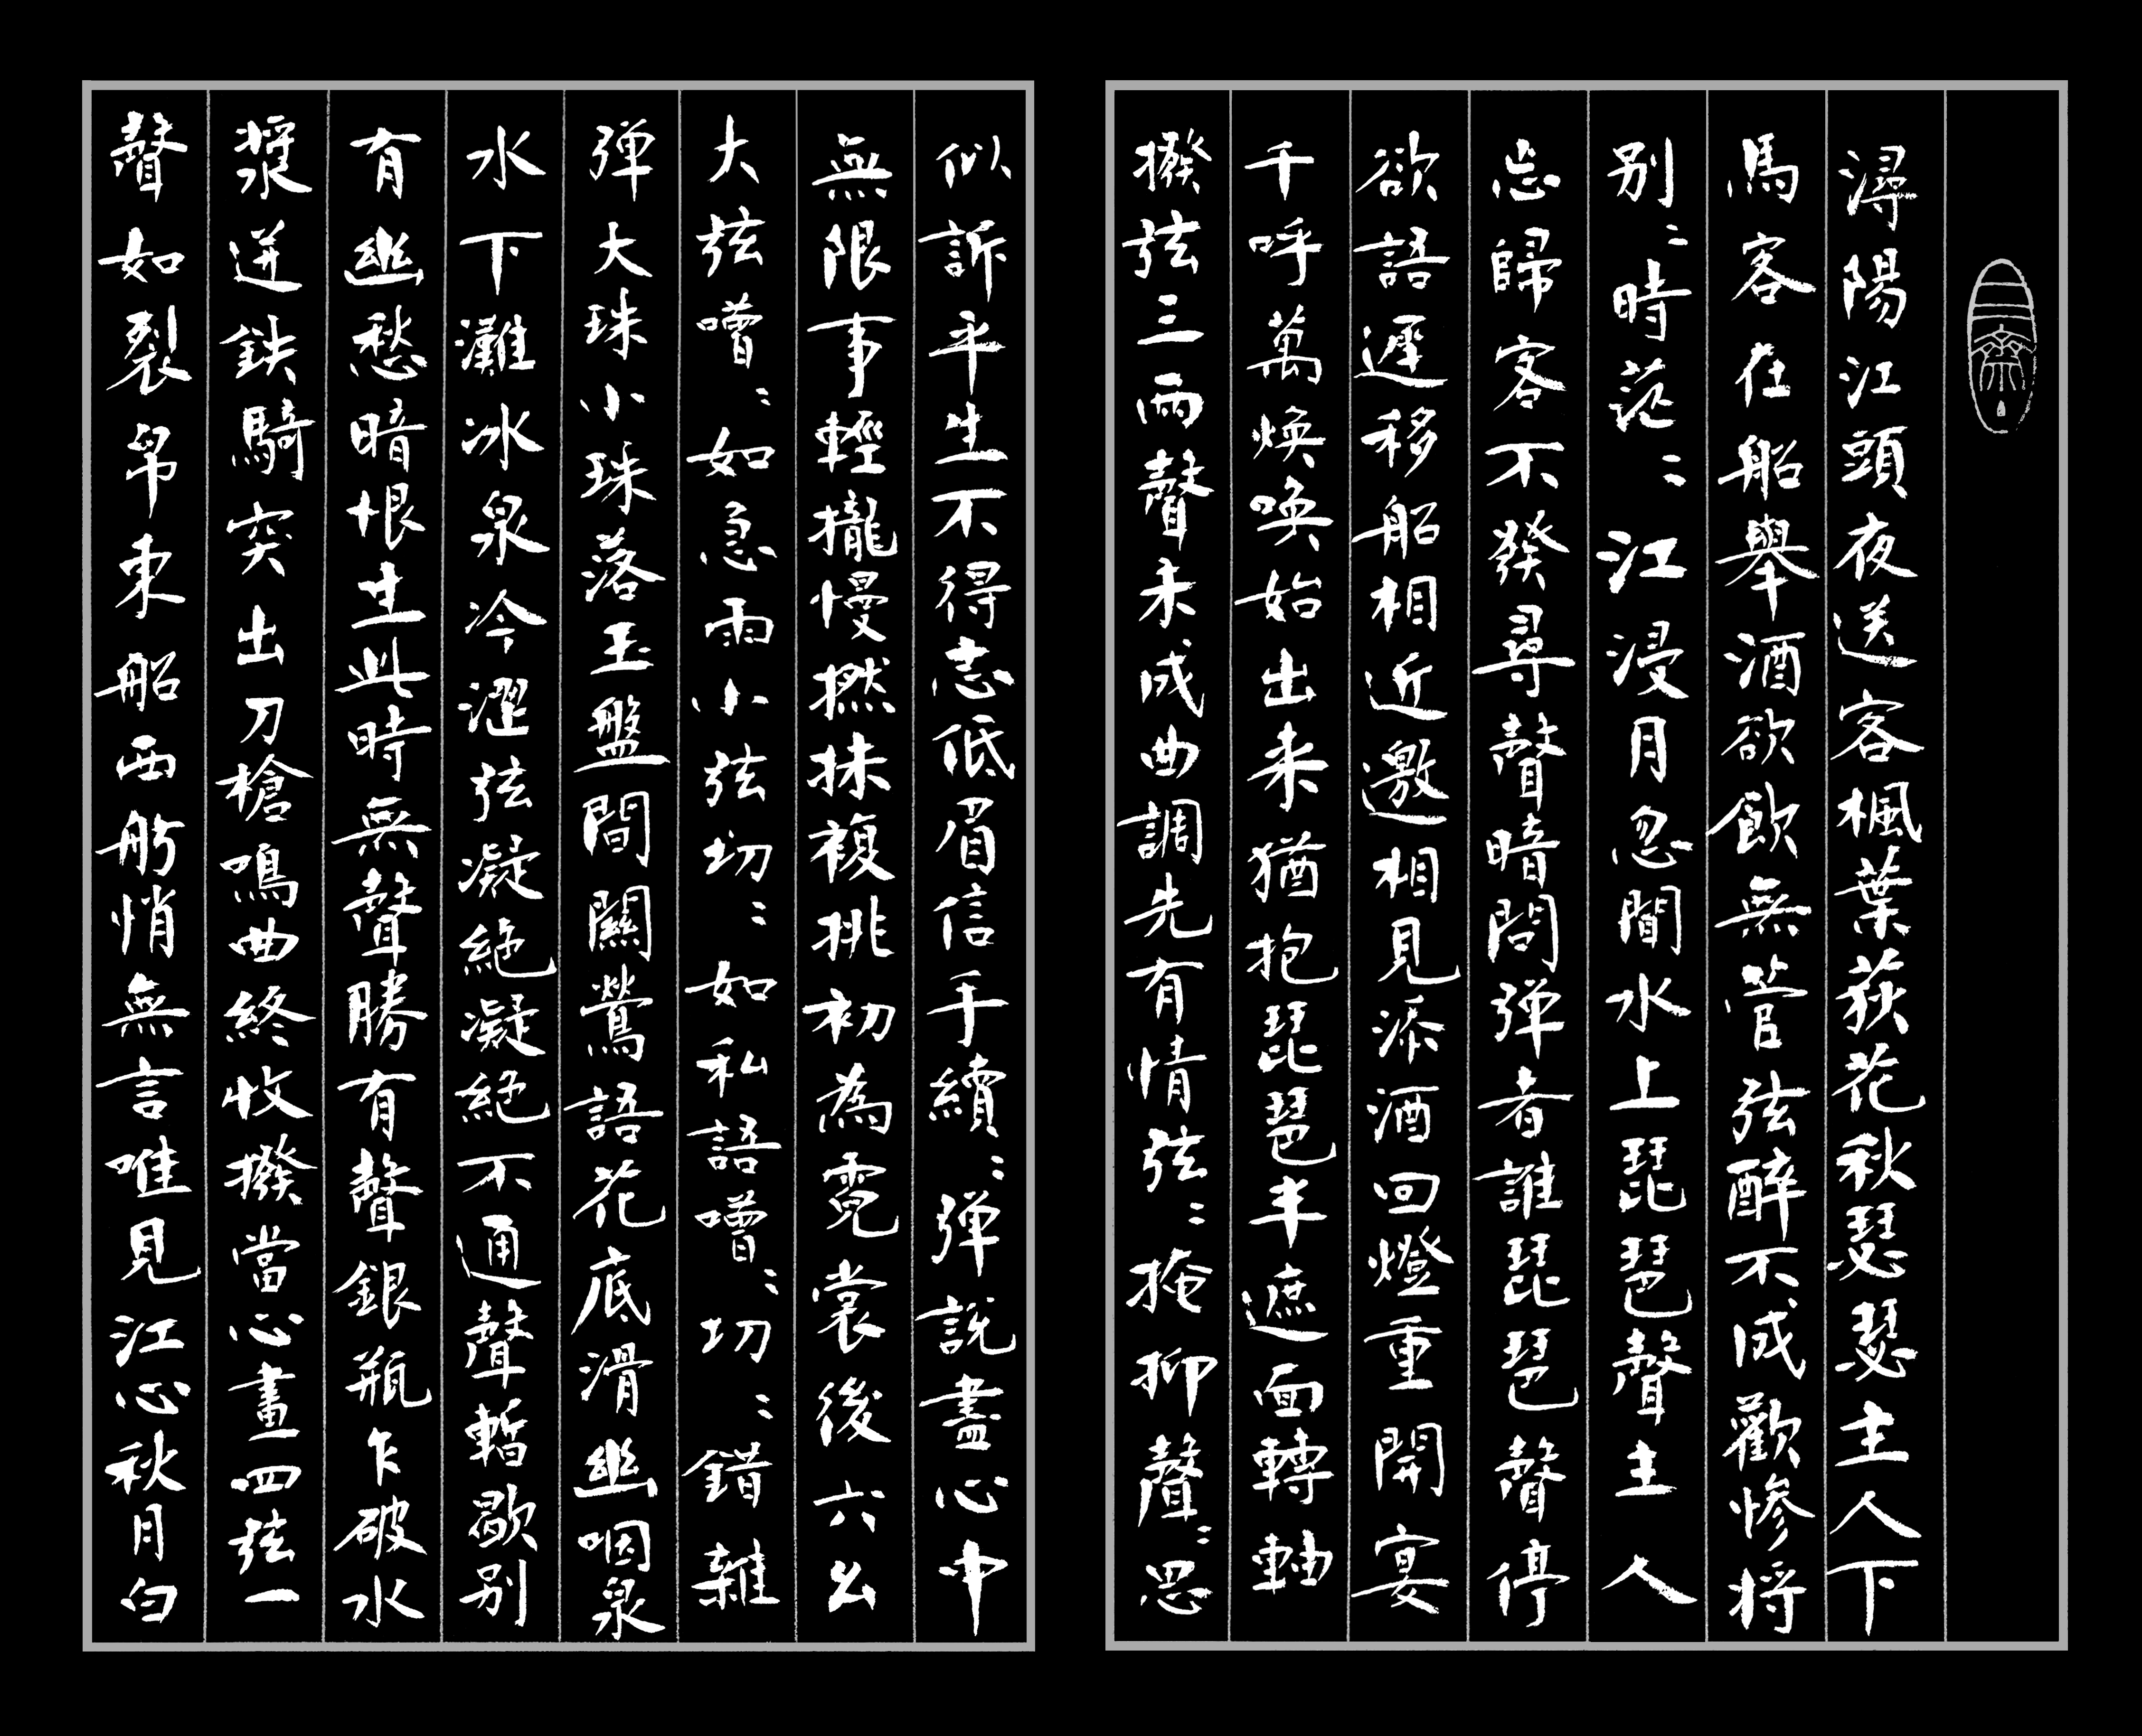 潯陽江頭夜送客楓葉荻花秋瑟瑟主人下
馬客在船舉酒欲飲無管弦醉不成歡慘將
別〻時茫〻江浸月忽聞水上琵琶聲主人
忘歸客不發尋聲暗問弹者誰琵琶聲停
欲語遲移船相近邀相見添酒回燈重開宴
千呼萬煥喚始出来猶抱琵琶半遮面轉軸
撥弦三兩聲未成曲調先有情弦〻掩抑聲〻思
似訴平生不得志低眉信手續〻弹說盡心中
無限事輕攏慢撚抹複挑初為霓裳後六幺
大弦嘈〻如急雨小弦切〻如私語嘈〻切〻錯雜
弹大珠小珠落玉盤間關鶯語花底滑幽咽泉
水下灘冰泉冷澀弦凝絕凝絕不通聲暫歇別
有幽愁暗恨生此時無聲勝有聲銀瓶乍破水
漿迸鉄騎突出刀槍鳴曲終收撥當心畫四弦一
聲如裂帛東船西舫悄無言唯見江心秋月白